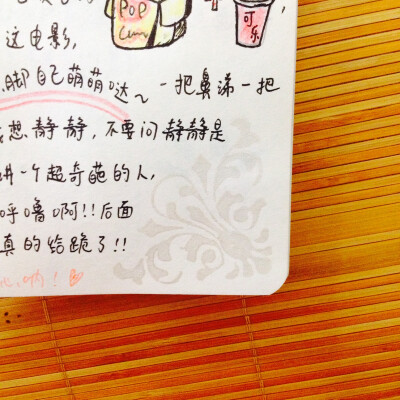 POP
Cum
可乐
这电影,
脚自己萌萌哒~ 一把鼻涕一把
想静静,不要问静静是
讲一个超奇葩的人,
呼噜啊!!后面
真的给跪了!!
呐!